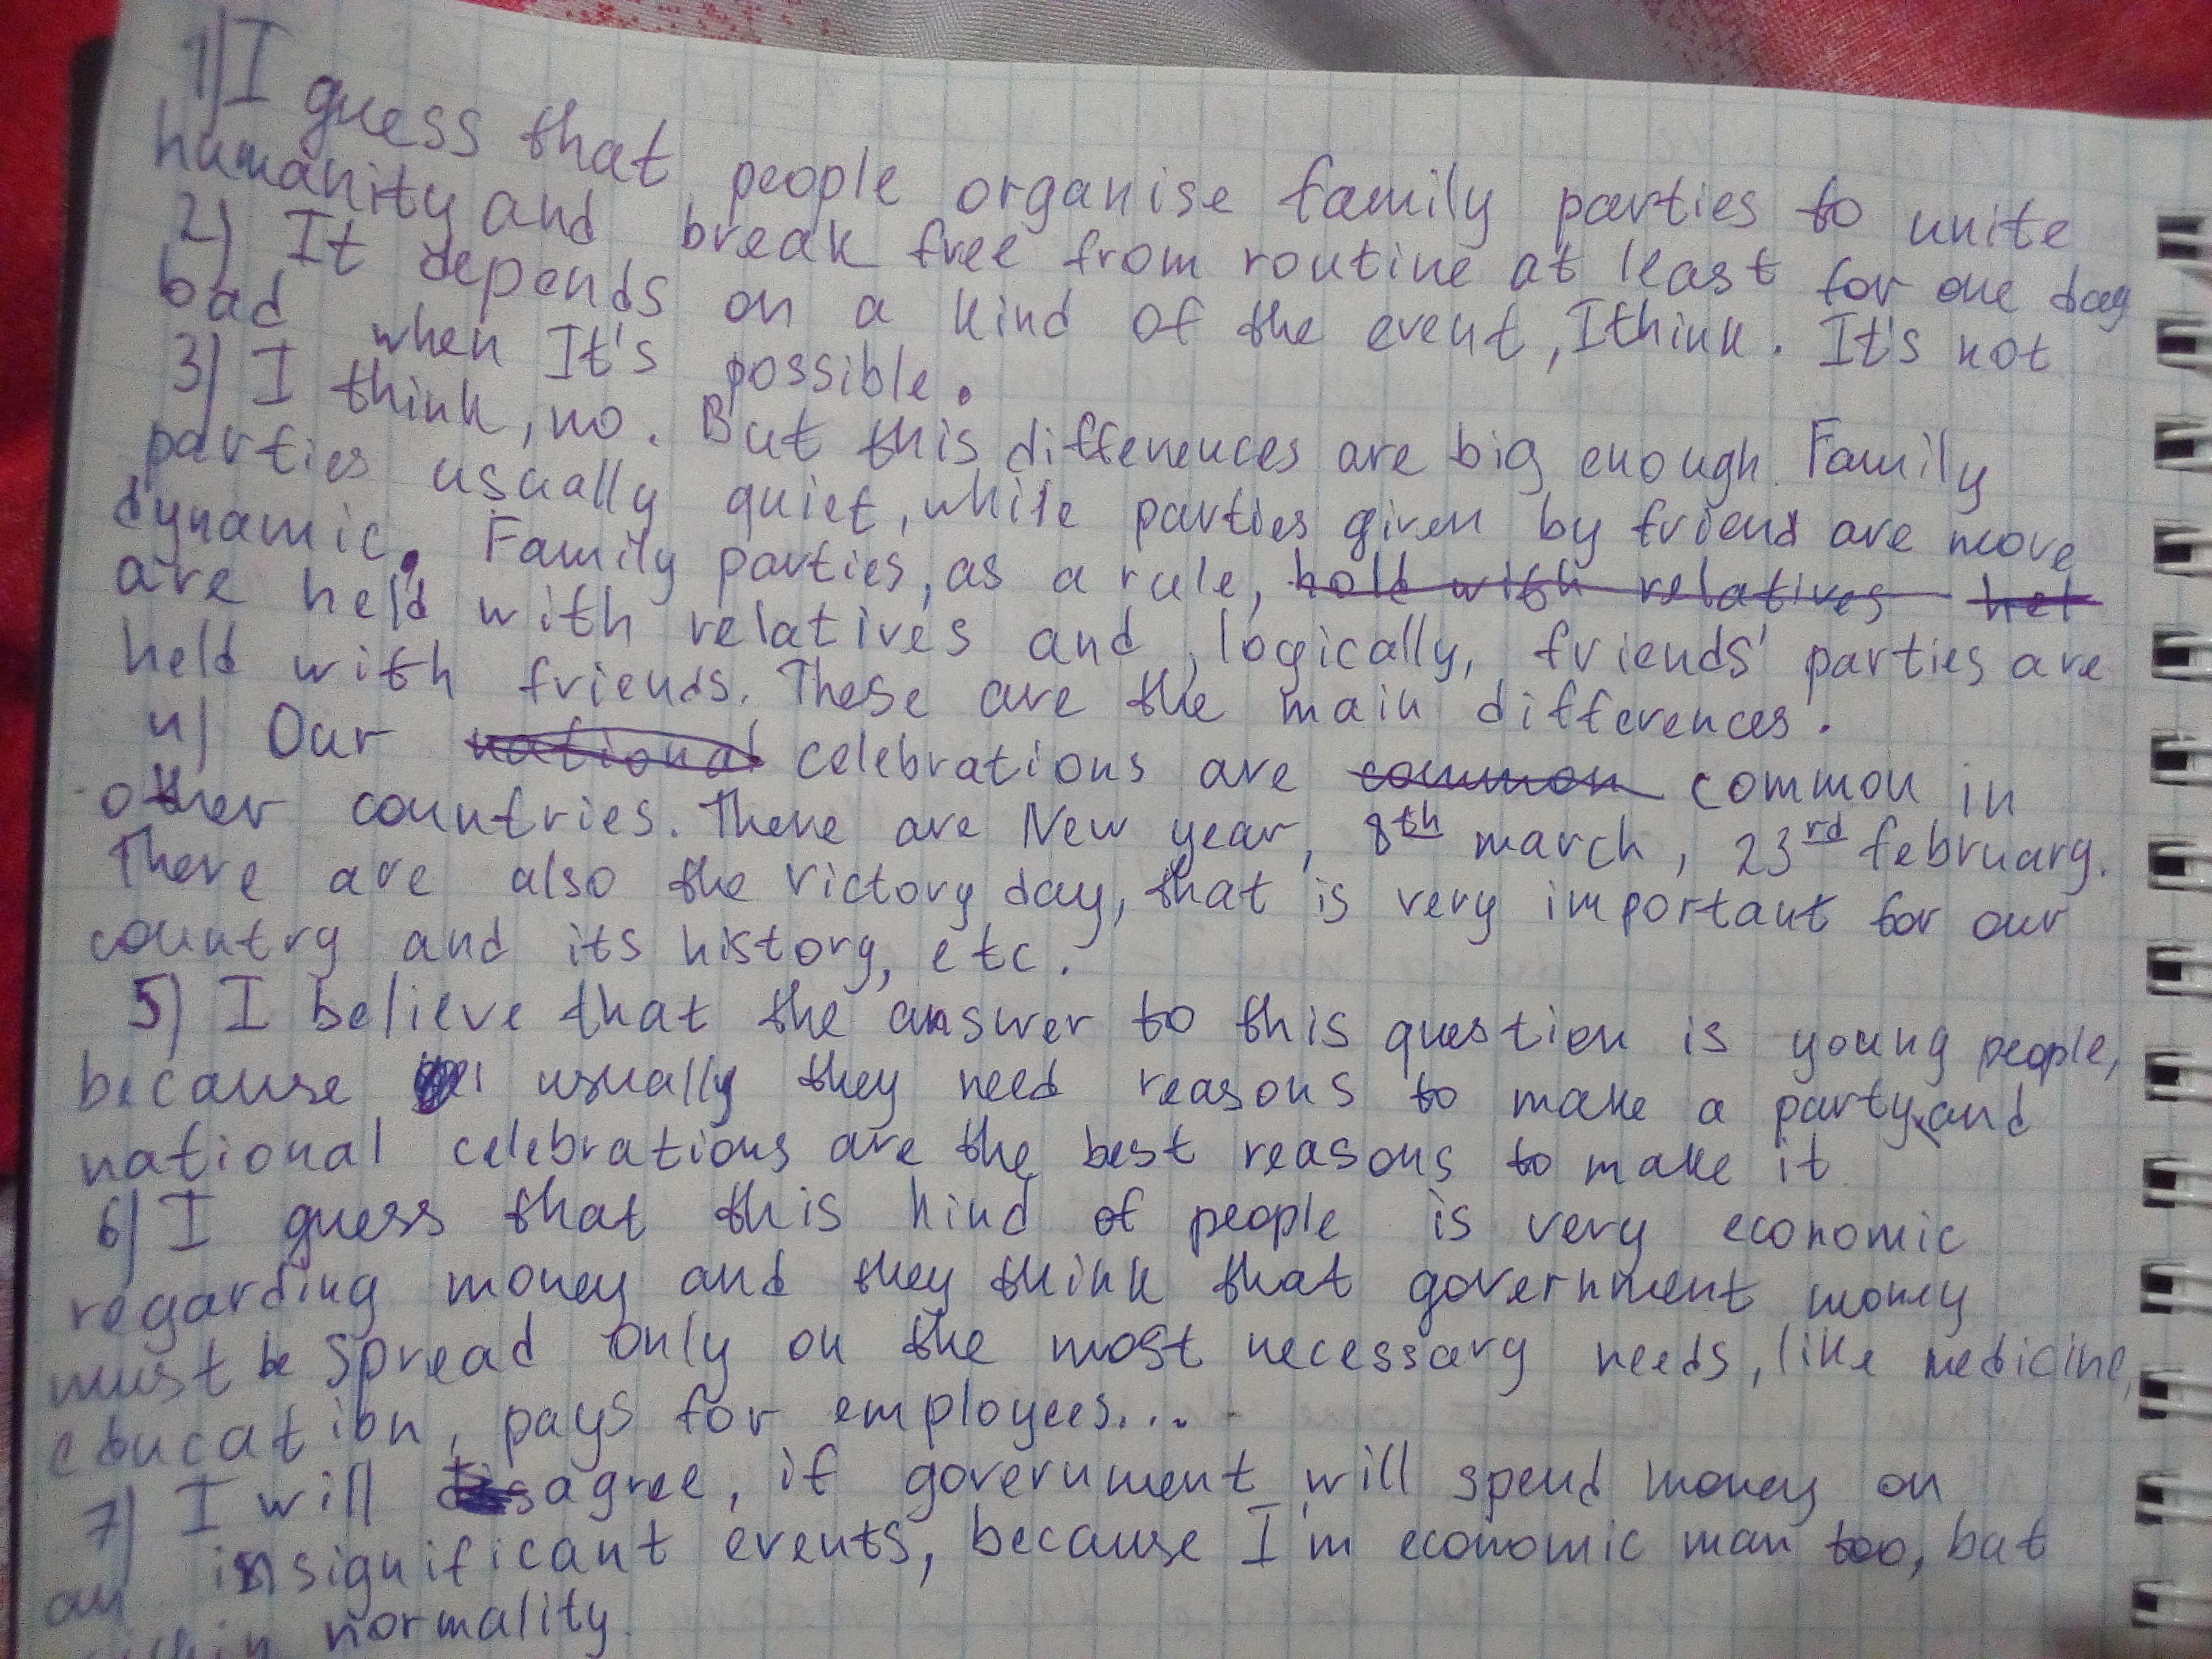 1) I guess that people organise family parties to unite
humanity and break free from routine at least for one day
2) It depends on a kind of the event, I think. It's not
bad when It's possible.
3) I think, no. But this differences are big enough. Family
parties usually quiet, while parties given by friend are more
dynamic. Family parties, as a rule, hold with relatives hel
are held with relatives and, logically, friends' parties are
held with friends. These are the main differences.
4) Our national celebrations are common common in
other countries. There are New year, 8th march, 23rd february.
There are also the victory day, that is very important for our
country and its history, etc.
5) I believe that the answer to this question is young people,
because usually they need reasons to make a party, and
national celebrations are the best reasons to make it
6) I guess that this kind of people is very economic
regarding money and they think that government money
must be spread only on the most necessary needs, like medicine,
education, pays for employees...
7) I will agree, if government will spend money on
an insignificant events, because I'm economic man too, but
within normality.